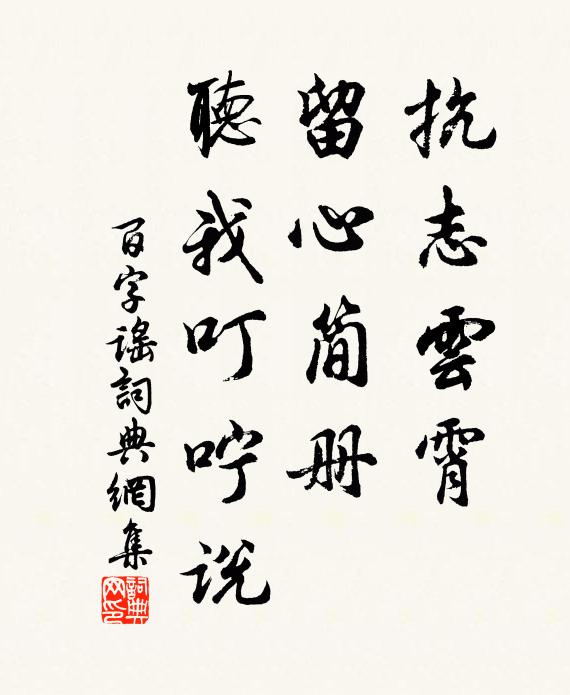 抗志雲霄
留心简册
聽我叮咛说
百字謠詞典網集
詞典网印